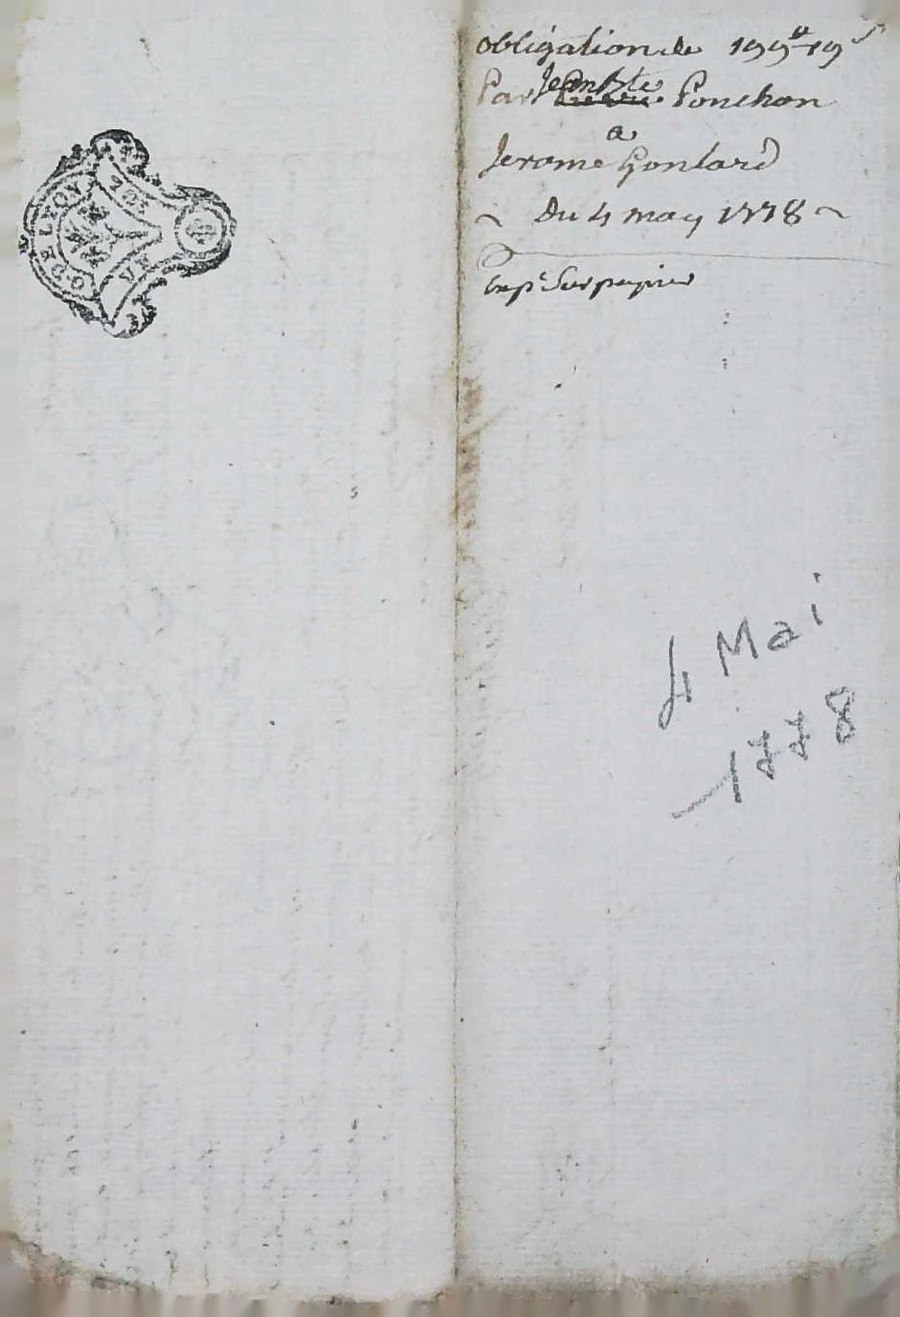 G. DE LYON
obligation de 199# 19s
Par Jean Bte Ponchon
a
Jerome Gontard
~ Du 4 may 1778 ~
Exp. Sur papier
4 Mai
1778